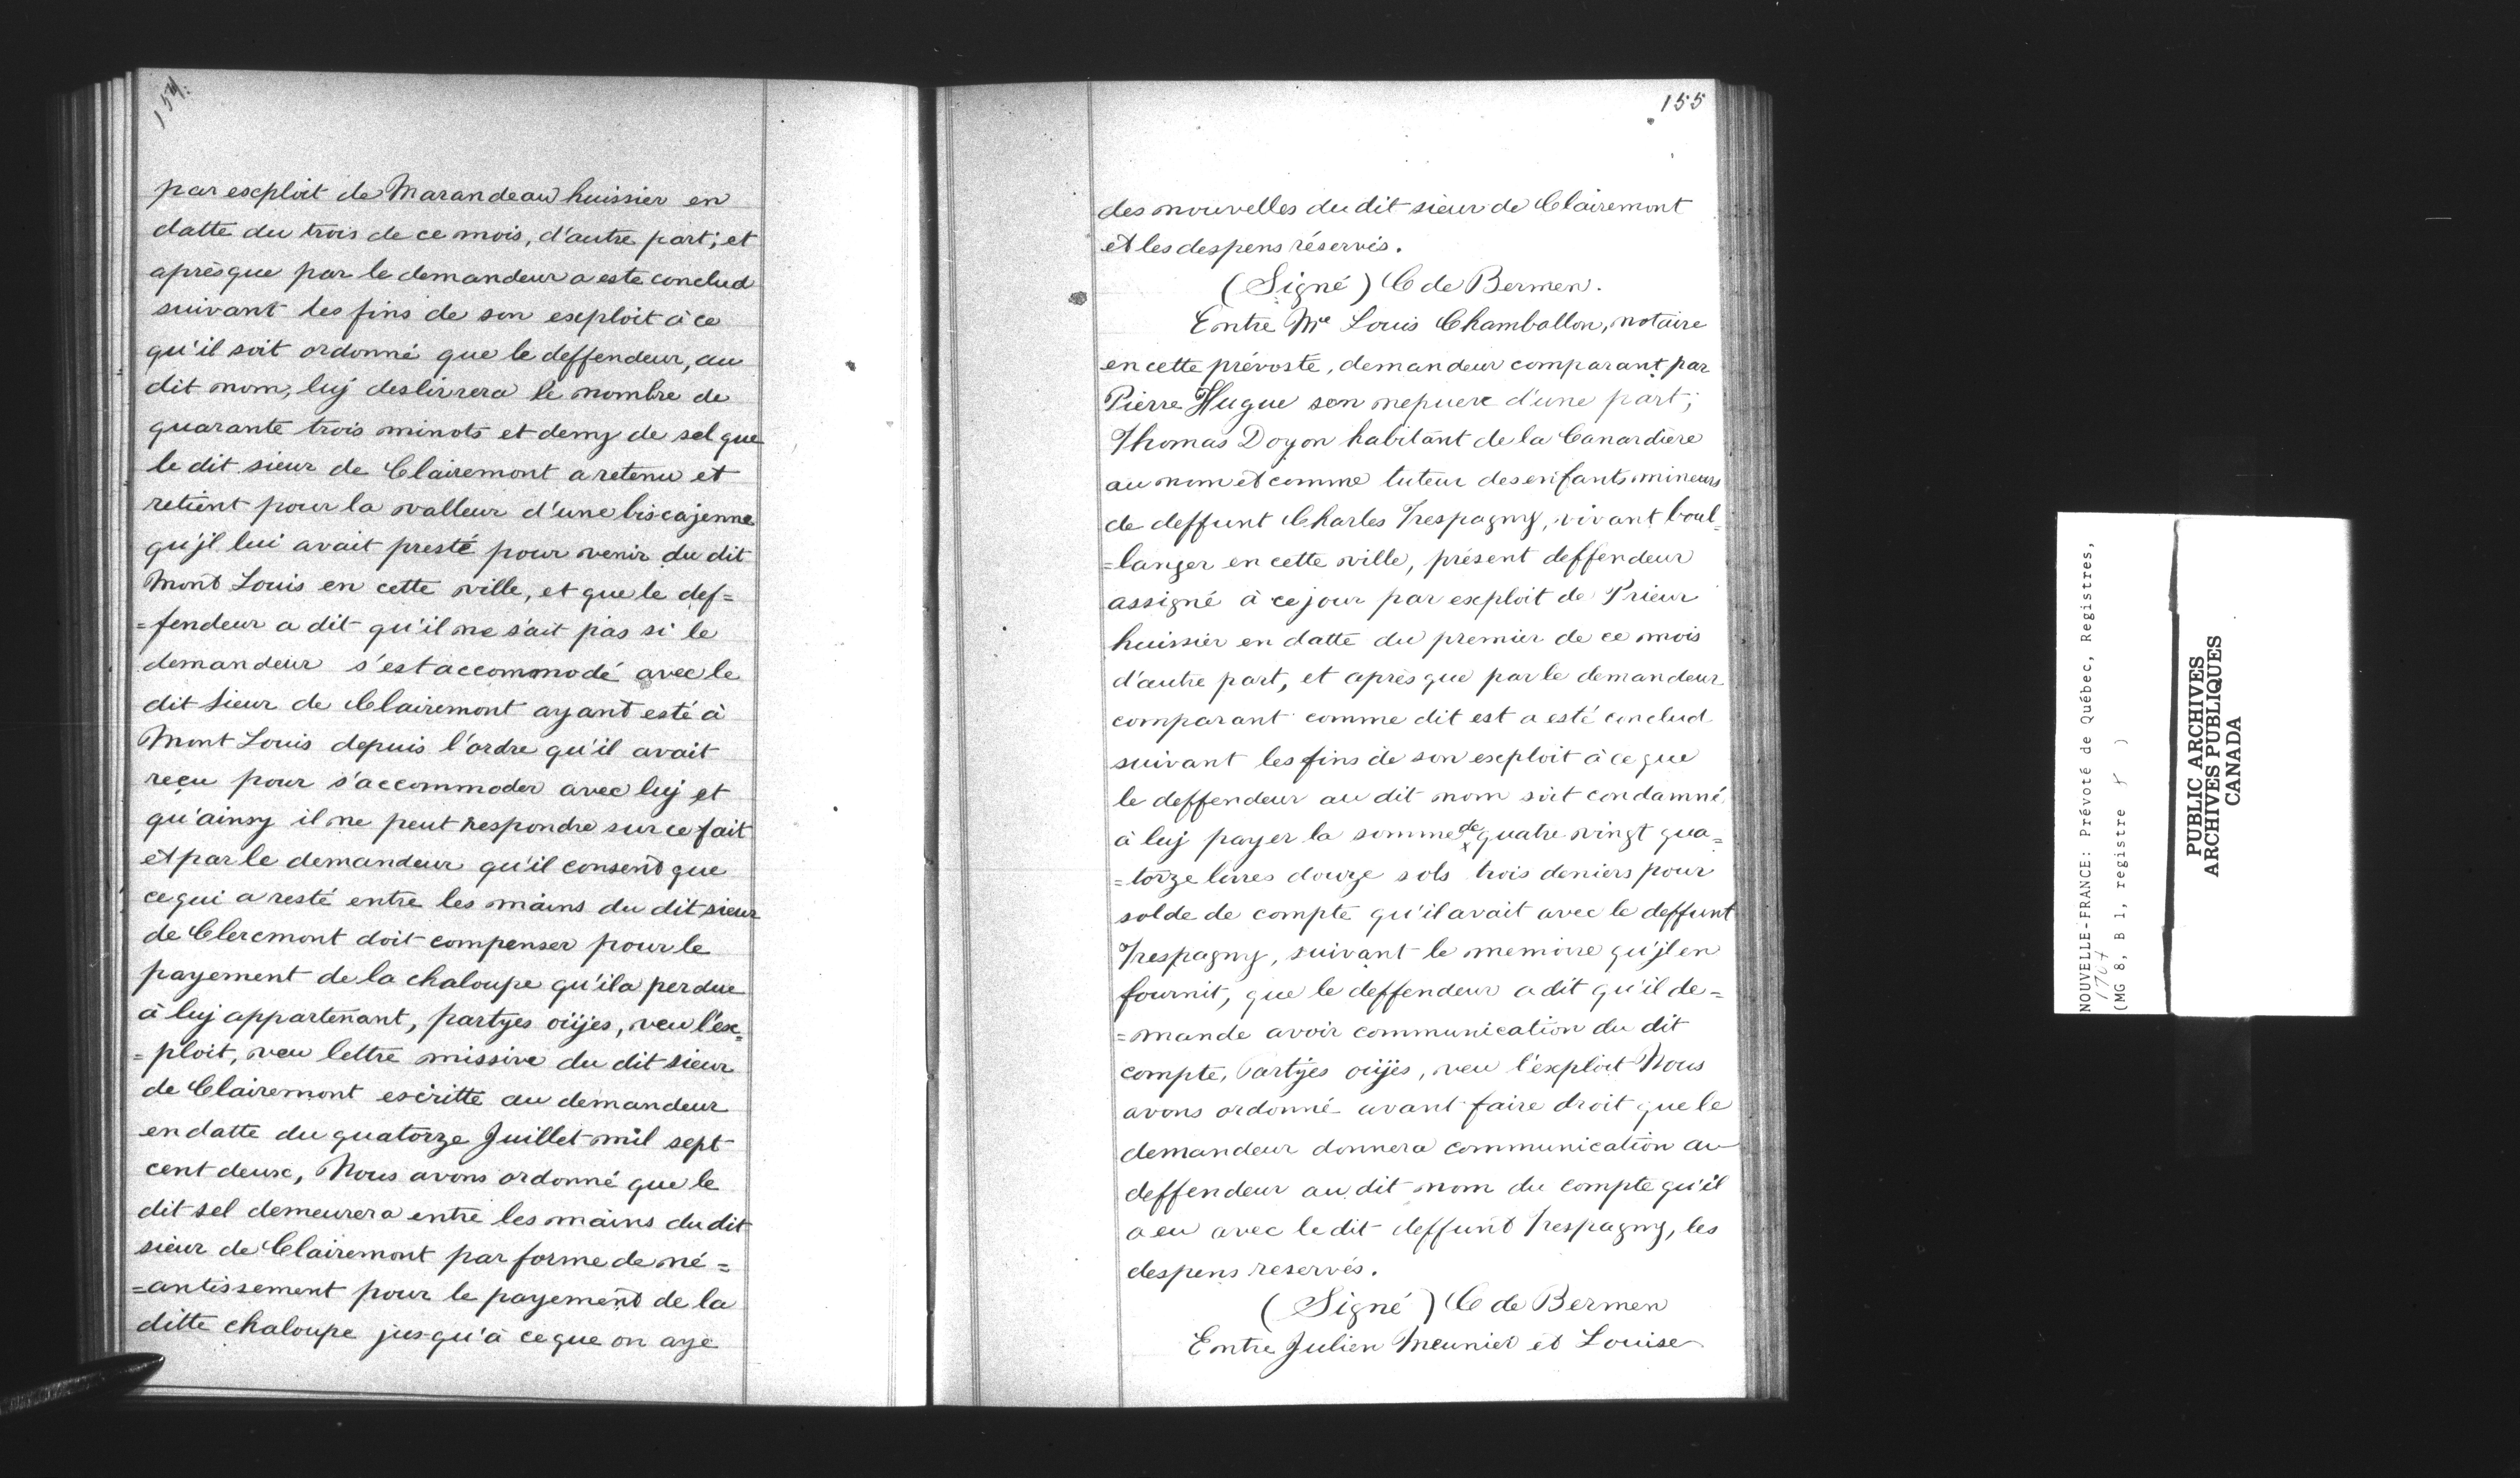 154.
par exploit de Marandeau huissier en
datte du trois de ce mois, d'autre part; et
après que par le demandeur a esté conclud
suivant les fins de son exploit à ce
qu'il soit ordonné que le deffendeur, au
dit nom, luy deslivrera le nombre de
quarante trois minots et demy de sel que
le dit sieur de Clairemont a retenu et
retient pour la valleur d'une biscajenne
qu'jl lui avait presté pour venir du dit
Mont Louis en cette ville, et que le def=
=fendeur a dit qu'il ne sait pas si le
demandeur s'est accommodé avec le
dit sieur de Clairemont ayant esté à
Mont Louis depuis l'ordre qu'il avait
reçu pour s'accommoder avec luj et
qu'ainsy il ne peut respondre sur ce fait
et par le demandeur qu'il consent que
ce qui a resté entre les mains du dit sieur
de Cleremont doit compenser pour le
payement de la chaloupe qu'il a perdue
à luj appartenant, partyes oüjes, veu l'ex=
=ploit, veu lettre missive du dit sieur
de Clairemont escritte au demandeur
en datte du quatorze Juillet mil sept
cent deux, Nous avons ordonné que le
dit sel demeurera entre les mains du dit
sieur de Clairemont par forme de né=
=antissement pour le payement de la
ditte chaloupe jusqu'à ce que on aye
155
des nouvelles du dit sieur de Clairemont
et les despens réservés.
(Signé) C de Bermen.
Entre Me Louis Chamballon, notaire
en cette prévosté, demandeur comparant par
Pierre Hugue son nepueu d'une part;
Thomas Doyon habitant de la Canardière
au nom et comme tuteur des enfants mineurs
de deffunt Charles Trespagny, vivant boul=
=langer en cette ville, présent deffendeur
assigné à ce jour par exploit de Prieur
huissier en datte du premier de ce mois
d'autre part, et après que par le demandeur
comparant comme dit est a esté conclud
suivant les fins de son exploit à ce que
le deffendeur au dit nom soit condamné
à luj payer la somme de quatre vingt qua=
=torze livres douze sols trois deniers pour
solde de compte qu'il avait avec le deffunt
Trespagny, suivant le memoire qu'jl en
fournit, que le deffendeur a dit qu'il de=
=mande avoir communication du dit
compte, Partyes oüjes, veu l'exploit Nous
avons ordonné avant faire droit que le
demandeur donnera communication au
deffendeur au dit nom du compte qu'il
a eu avec le dit deffunt Trespagny, les
despens reservés.
(Signé) C de Bermen
Entre Julien Meunier et Louise
NOUVELLE-FRANCE: Prévoté de Québec, Registres,
(MG 8, B 1, registre )
PUBLIC ARCHIVES
ARCHIVES PUBLIQUES
CANADA